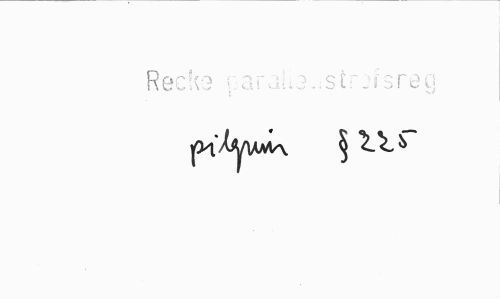 Recke parallelstrafsreg
pilgrim § 225